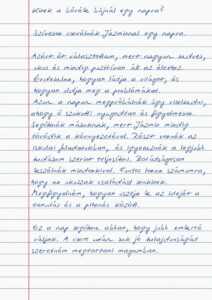 Kinek a bőrébe bújnál egy napra?
Szívesen cserélnék Jázminnal egy napra.
Azért őt választottam, mert nagyon kedves,
okos és mindig pozitívan áll az élethez.
Érdekelne, hogyan látja a világot, és
hogyan oldja meg a problémákat.
Azon a napon megpróbálnék úgy viselkedni,
ahogy ő szokott: nyugodtan és figyelmesen.
Segítenék másoknak, mert Jázmin mindig
törődik a környezetével. Részt vennék az
iskolai feladatokban, és igyekeznék a legjobb
tudásom szerint teljesíteni. Barátságosan
beszélnék mindenkivel. Fontos lenne számomra,
hogy ne okozzak csalódást senkinek.
Megfigyelném, hogyan osztja be az idejét a
tanulás és a pihenés között.
Ez a nap segítene abban, hogy jobb emberré
váljak. A csere után sok jó tulajdonságát
szeretném megtartani magamban.